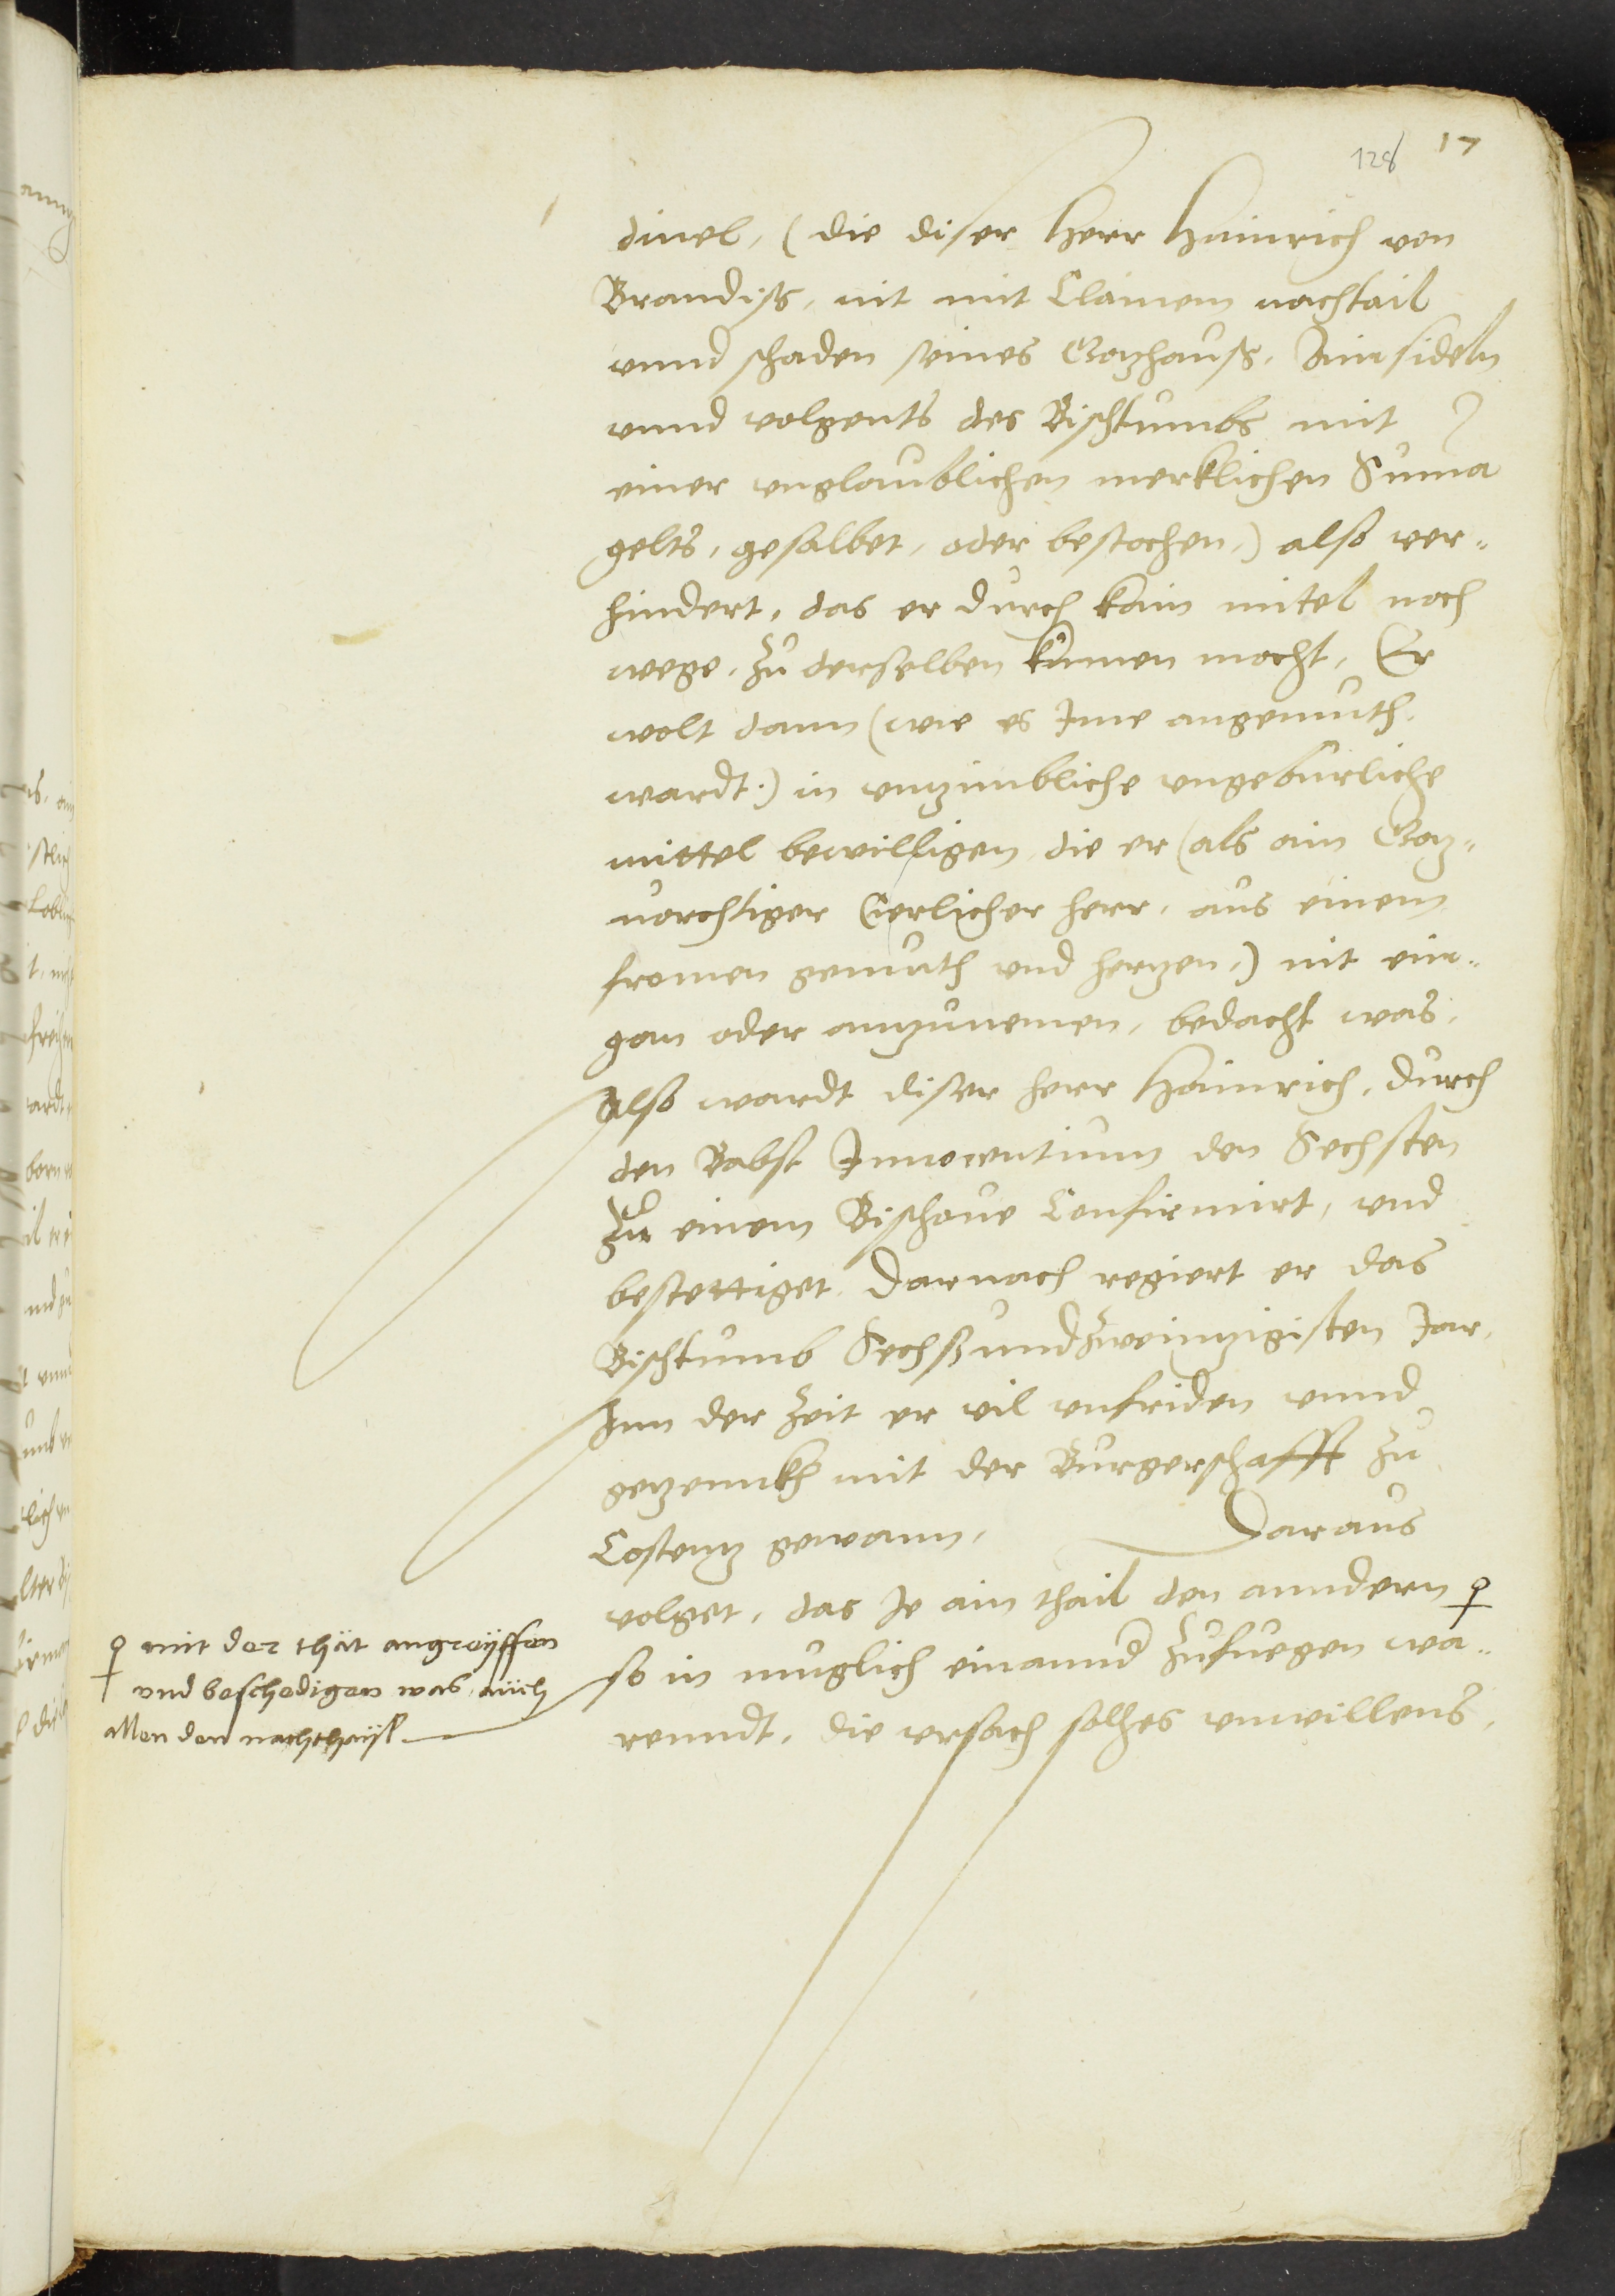 128 17
dinel, (die diser Herr Hainrich von
Brandiß, nit mit Clainem nachtail
vnnd schaden seines Gotzhauß, Ainsideln
vnnd volgents des Bischtumbs mit
einer vnglaublichen merklichen Suma
gelts, gesalbet, oder bestochen,) also ver„
hindert, das er durch kain mitel noch
wege, zu derselben kumen mocht, Er
wolt dann (wie es Ime angemuth
wardt.) in vnzimbliche vngeburliche
mittel bewilligen die er (als ain Gotz„
vorchtiger Eerlicher herr, aus einem
fromen gemuth vnd hertzen,) nit ein„
gan oder anzunemen, bedacht was,
Also wardt diser herr Hainrich, durch
den Babst Innocentium den Sechsten
Zu einem Bischoue Confirmirt, vnd
bestettiget, Darnach regiert er das
Bischtumb Sechßundzweintzigisten Jar,
Inn der Zeit er vil vnfriden vnnd
getzennkh mit der Burgerschafft zu
Costentz gewann, Daraus
volget, das Je ain thail den anndern
so in muglich einannd Zufuegen wa„
renndt, die vrsach solhes vnwillens,
mit der thät angreÿffen
vnd beschedigen was auch
allen den nachthaÿl